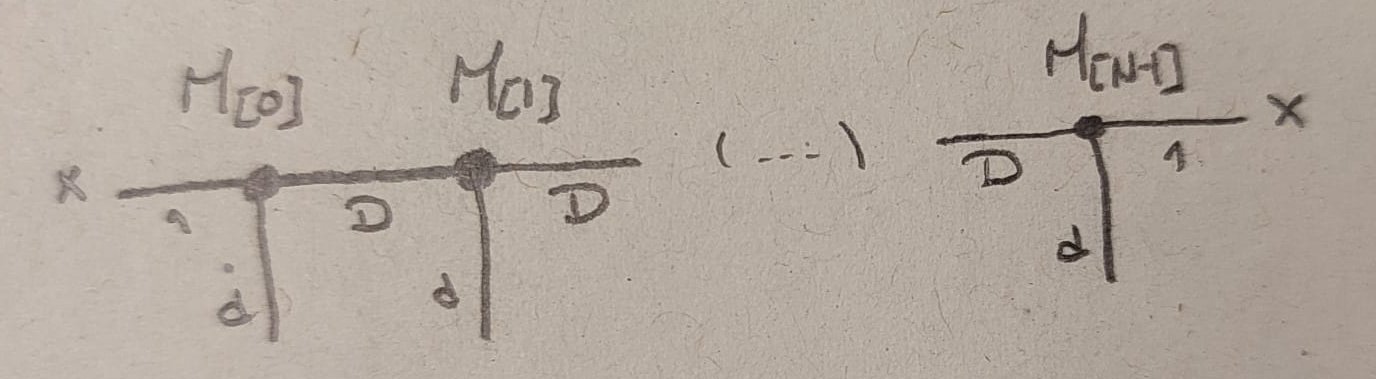 M[0] M[1] M[N-1]
x 1 D D (---) D 1 x
d d d